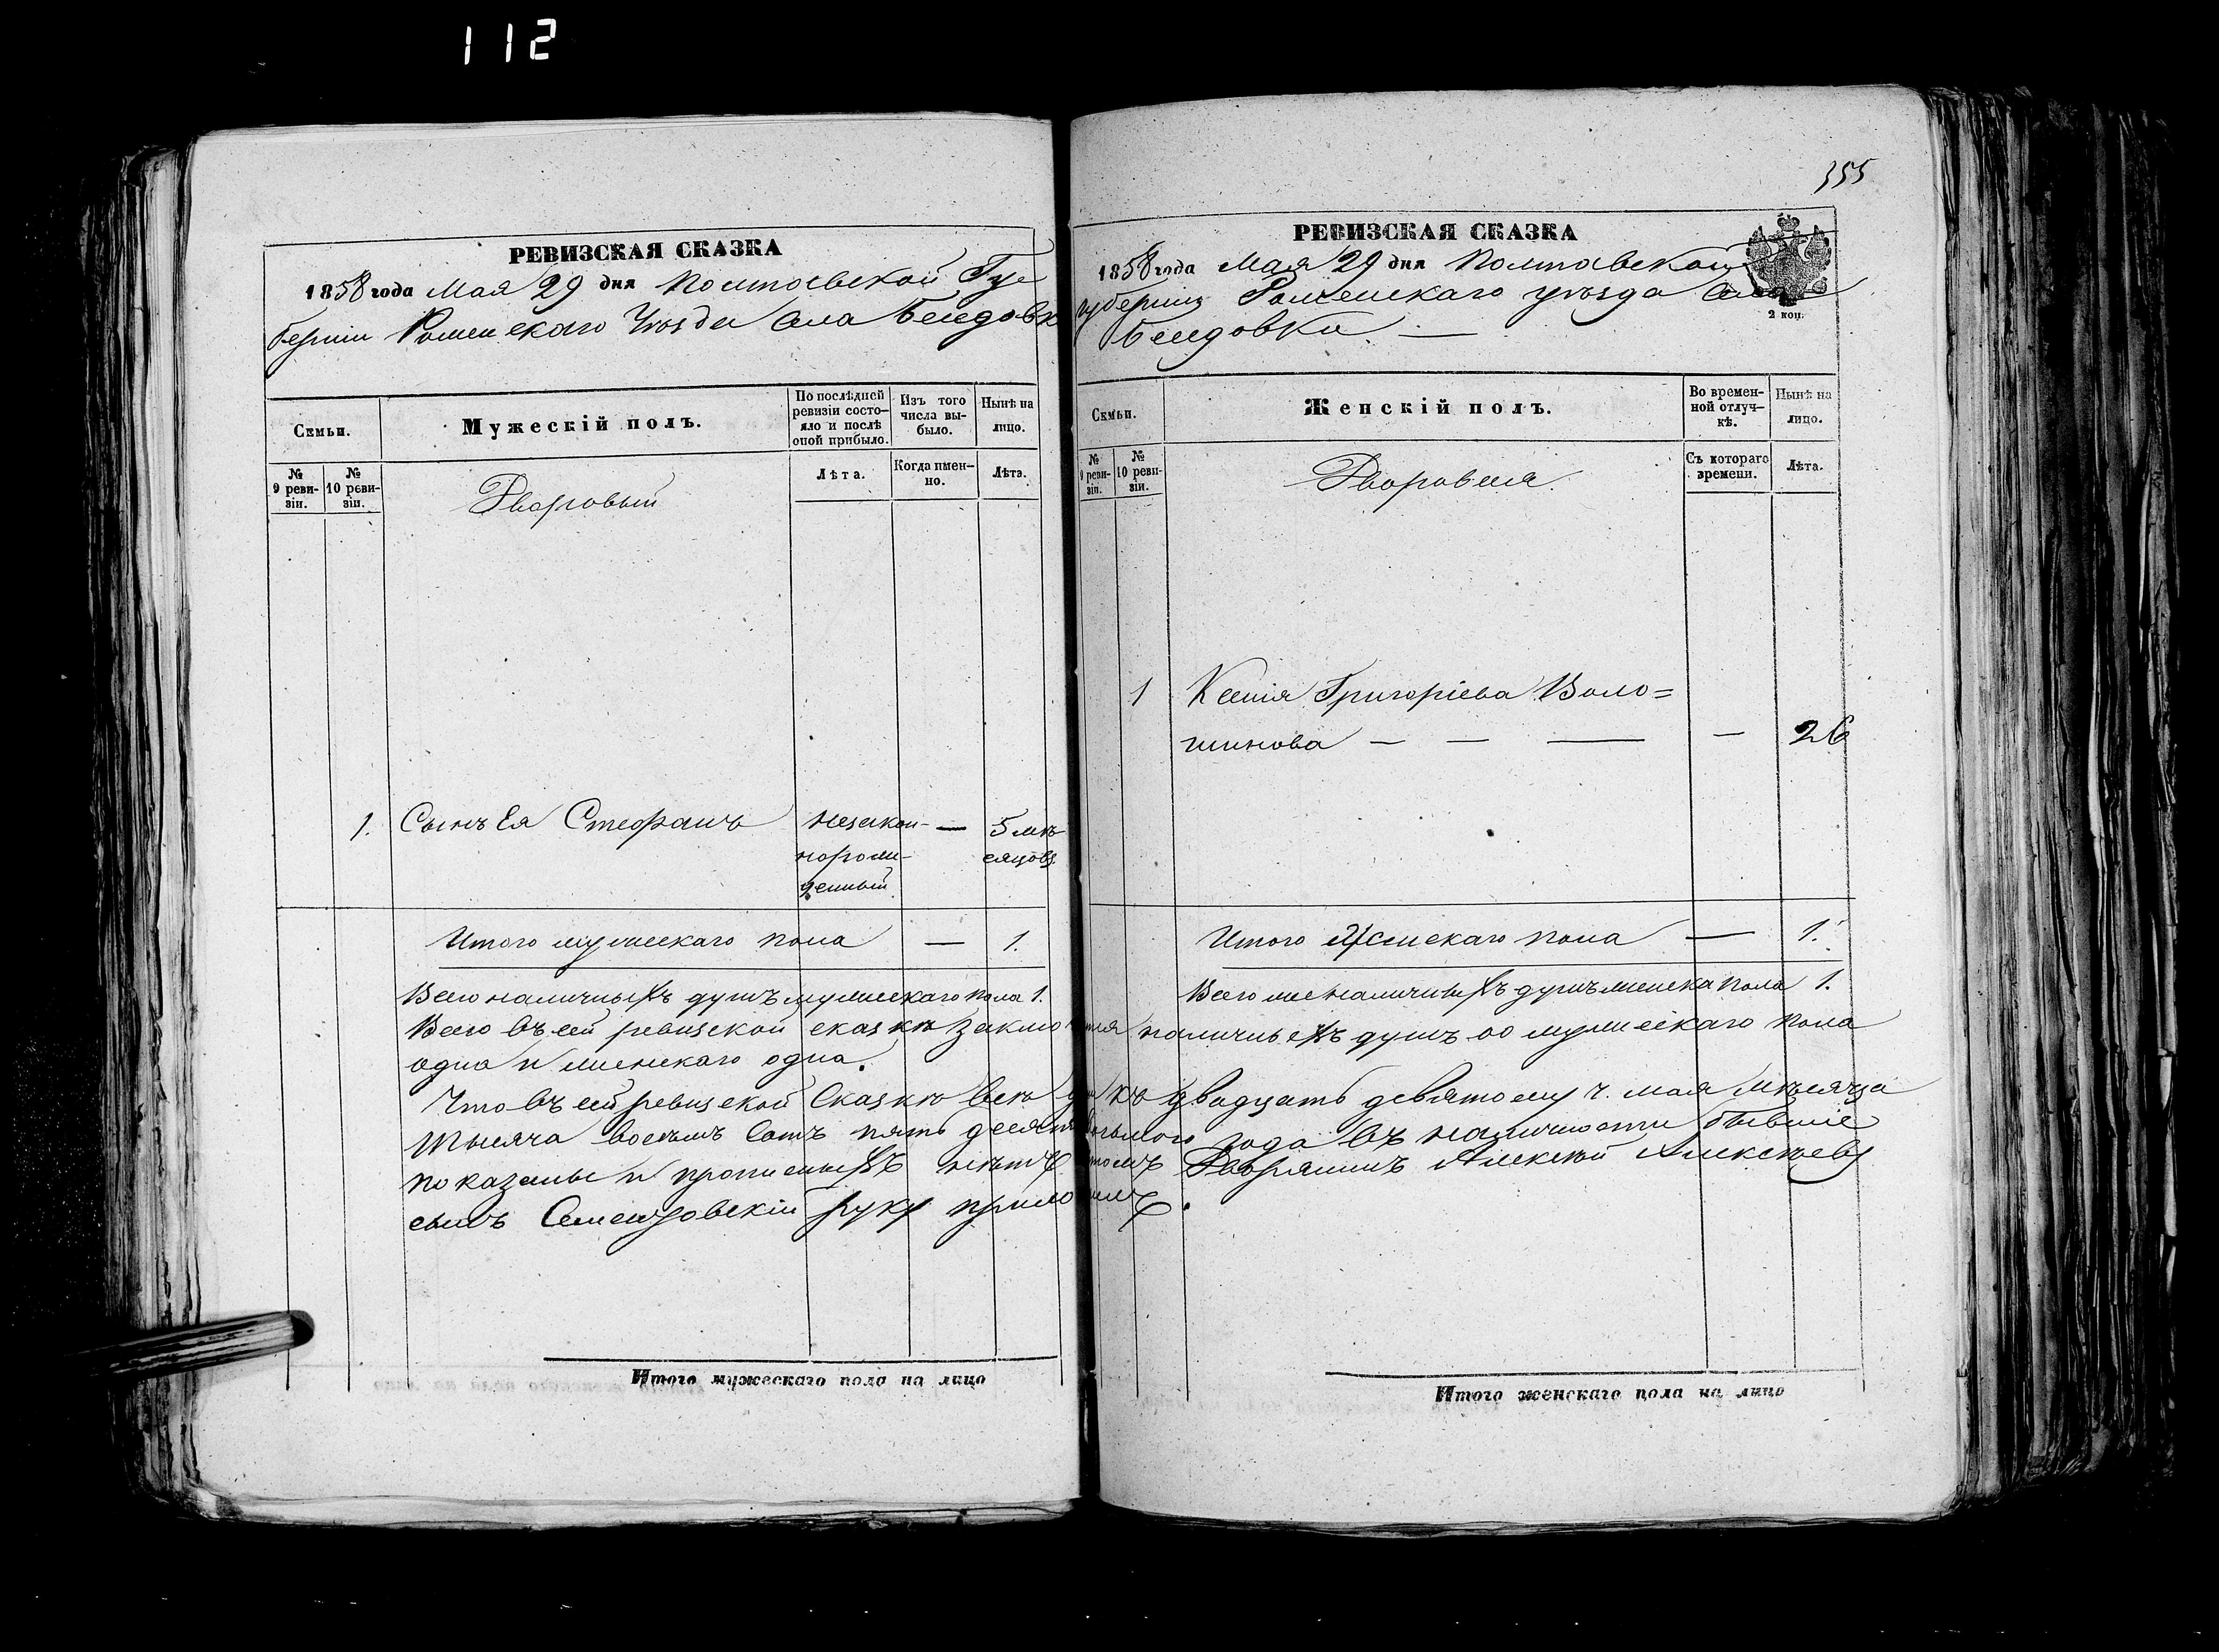 112
РЕВИЗСКАЯ СКАЗКА
1858 года Мая 29 дня Полтавской Гу-
берніи Роменскаго Уѣзда Села Бендовк
Семьи.
Мужескій полъ.
По послѣдней ревизіи состояло и послѣ оной прибыло.
Изъ того числа выбыло.
Нынѣ на лицо.
№ 9 ревизіи.
№ 10 ревизіи.
Дворовый
Лѣта.
Когда именно.
Лѣта.
1. Сынъ Ея Стефанъ незакон- — 5 мѣ-
норож- сяцовъ
денный
Итого мужескаго пола — 1.
Всего наличныхъ душъ мужескаго пола 1.
355
РЕВИЗСКАЯ СКАЗКА
1858 года Мая 29 дня Полтавской
губерніи Роменскаго уѣзда Села
Бендовки. —
2 коп.
Семьи.
Женскій полъ.
Во временной отлучкѣ.
Нынѣ на лицо.
№ 9 ревизіи.
№ 10 ревизіи.
Дворовыя.
Съ котораго времени.
Лѣта.
1 Ксенія Григоріева Воло=
шинова — — — — 26
Итого Женскаго пола — 1.
Всего наличныхъ душъ женска пола 1.
Всего въ сей ревизской сказкѣ заключ тся наличныхъ душъ оо мужескаго пола
одна и женскаго одна.
Что въ сей ревизской Сказкѣ всѣ къ двадцать девятому ч. мая мѣсяца
тысяча восемь Сотъ пять десятъ осьмого года въ наличности бывшіе
показаны и прописныхъ нѣтъ въ томъ Дворянинъ Алексѣй Алексѣевъ
сынъ Сементовскій руку приложилъ.
Итого мужескаго пола на лицо
Итого женскаго пола на лицо